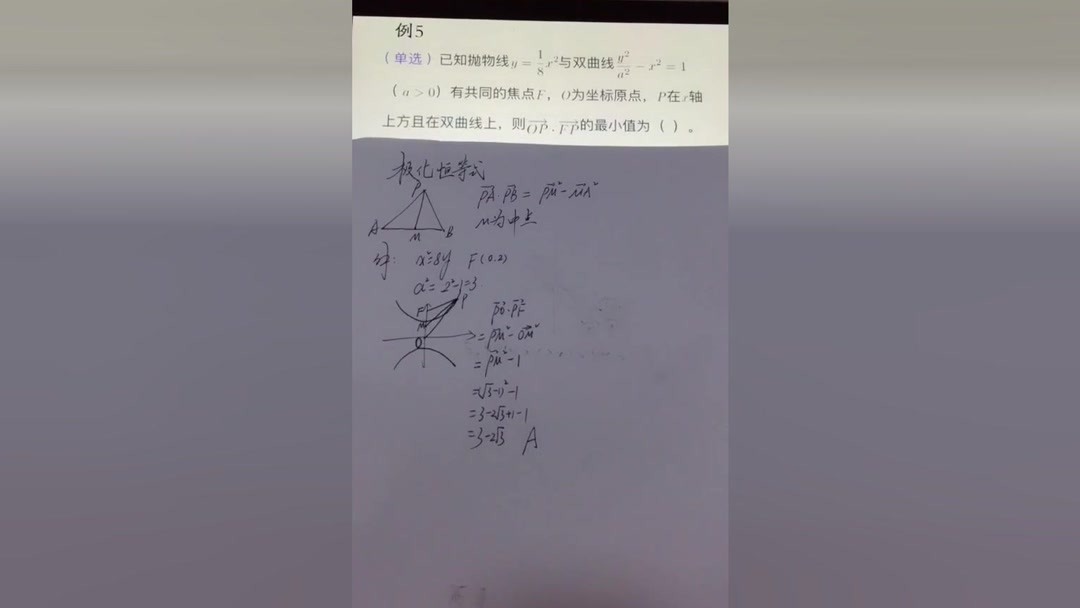 例5
(单选)已知抛物线y=\frac{1}{8}x²与双曲线\frac{y²}{a²}-x²=1
(a>0)有共同的焦点F,O为坐标原点,P在x轴
上方且在双曲线上,则\overrightarrow{OP}·\overrightarrow{FP}的最小值为()。
极化恒等式
P
A M B
\overrightarrow{PA}·\overrightarrow{PB}=\overrightarrow{PM}²-\overrightarrow{MA}²
M为中点
解: x²=8y F(0.2)
a²=2²-1=3
F P
M
O
\overrightarrow{PO}·\overrightarrow{PF}
=\overrightarrow{PM}²-\overrightarrow{OM}²
=\overrightarrow{PM}²-1
=(√3-1)²-1
=3-2√3+1-1
=3-2√3 A